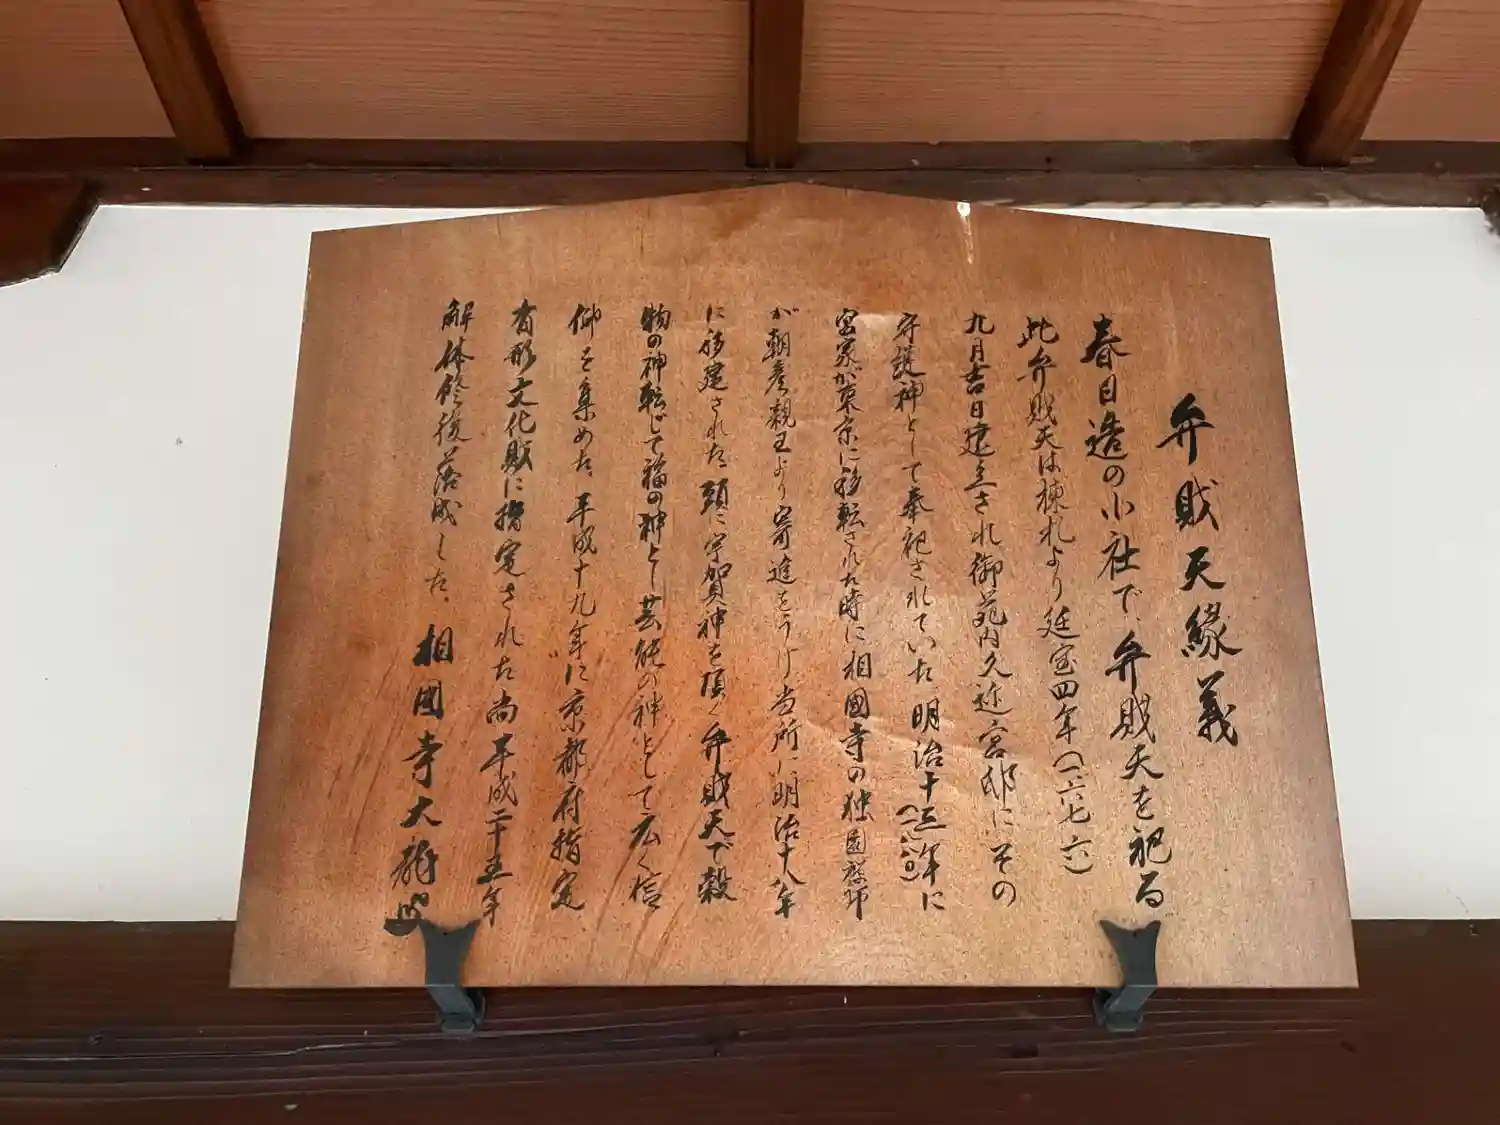 弁財天縁義
春日造の小社で、弁財天を祀る
此弁財天は棟札より延宝四年(一六七六)
九月吉日建立され御苑内久迩宮邸にその
守護神として奉祀されていた。明治十三(一八八〇)年に
宮家が東京に移転された時に相國寺の独園禅師
が朝彦親王より寄進をうけ当所に明治十八年
に移建された。頭に宇賀神を頂く弁財天で穀
物の神転じて福の神とし芸能の神として広く信
仰を集めた。平成十九年に京都府指定
有形文化財に指定された尚平成二十五年
解体修復落成した。 相國寺大龍